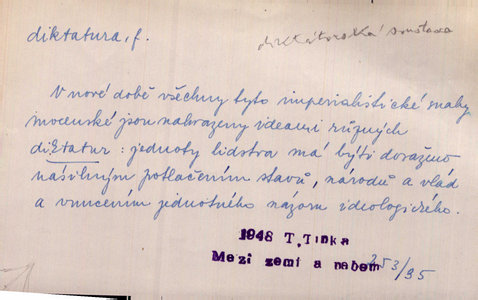 diktatura, f.
diktátorská soustava
V nové době všechny tyto imperialistické snahy
mocenské jsou nahrazeny ideami různých
diktatur: jednoty lidstva má býti dosaženo
násilným potlačením stavů, národů a vlád
a vnucením jednotného názoru ideologického.
1948 T. Tinka
Mezi zemi a nebem 253/95